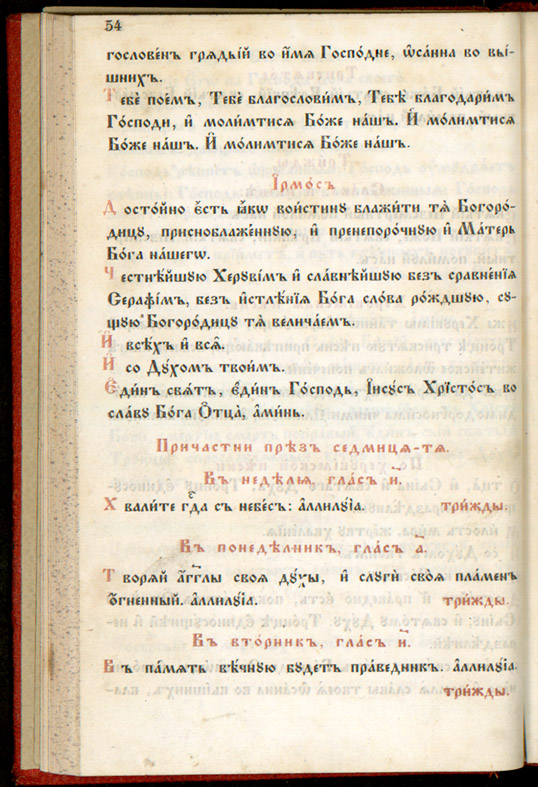 54
гослове́нъ грѧды́й во и҆́мѧ Госпо́дне, ѡ҆са́нна во вы́-
шнихъ.
Тебѐ пое́мъ, Тебѐ благослови́мъ, Тебѣ̀ благодари́мъ
Го́споди, и҆ мо́лимтисѧ Бо́же на́шъ. И҆ мо́лимтисѧ
Бо́же на́шъ. И҆ мо́лимтисѧ Бо́же на́шъ.
І҆рмо́съ
Досто́йно є҆́сть ꙗ҆́кѡ вои́стину блажи́ти тѧ̀ Богоро́-
дицу, присноблаже́нную, и҆ пренепоро́чную и҆ Ма́терь
Бо́га на́шегѡ.
Честнѣ́йшую Херуві́мъ и҆ сла́внѣйшую безъ сравне́нїѧ
Серафі́мъ, безъ и҆стлѣ́нїѧ Бо́га сло́ва ро́ждшую, су́-
щую Богоро́дицу тѧ̀ велича́емъ.
И҆ всѣ́хъ и҆ всѧ̑.
И҆ со Ду́хомъ твои́мъ.
Є҆ди́нъ свѧ́тъ, є҆ди́нъ Госпо́дь, І҆исусъ Хрїсто́съ во
сла́ву Бо́га Ѻ҆тца̀, а҆ми́нь.
Причастни презъ седмицѧ-тѧ.
Въ недѣлѧ, гласъ и҃.
Хвали́те гд҇а съ небе́съ: а҆ллилу́їа. три́жды.
Въ понедѣлникъ, гласъ а҃.
Творѧ́й а҆́гглы своѧ̑ ду́хы, и҆ слуги̑ своѧ̑ пла́менъ
ѻ҆́гненный. а҆ллилу́їа. три́жды.
Въ вторникъ, гласъ и҃.
Въ па́мѧть вѣ́чную бу́детъ пра́ведникъ. а҆ллилу́їа.
три́жды.